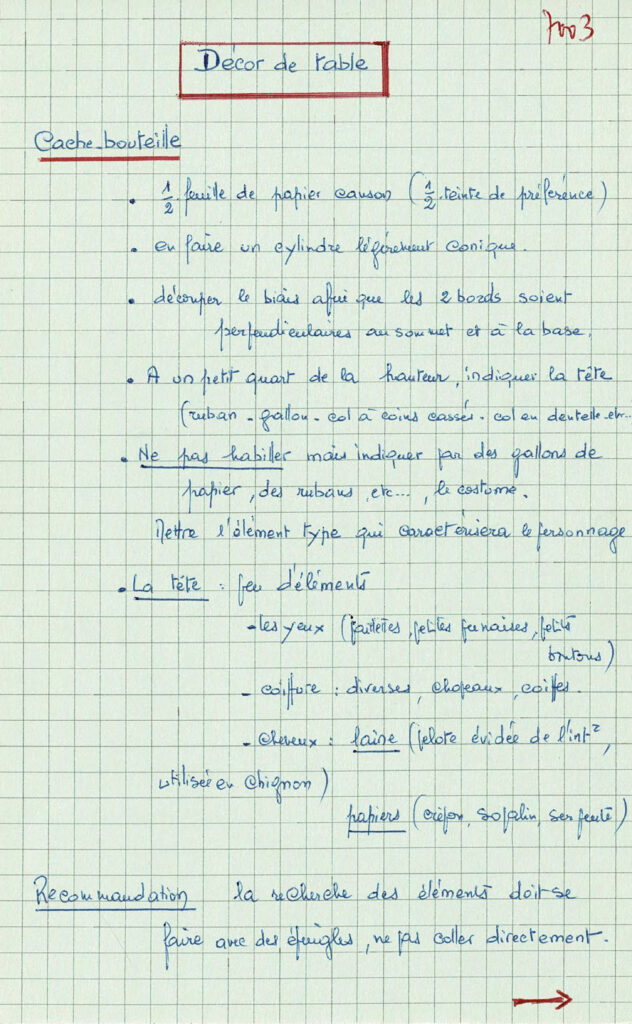 7003
Décor de table
Cache-bouteille
. 1/2 feuille de papier canson (1/2 teinte de préférence)
. en faire un cylindre légèrement conique.
. découper le biais afin que les 2 bords soient
perpendiculaires au sommet et à la base.
. A un petit quart de la hauteur, indiquer la tête
(ruban - gallon - col à coins cassés - col en dentelle - etc...
. Ne pas habiller mais indiquer par des gallons de
papier, des rubans, etc..., le costume.
Mettre l'élément type qui caractérisera le personnage
. La tête : peu d'éléments
- les yeux (paillettes, petites punaises, petits
boutons)
- coiffure : diverses, chapeaux, coiffes.
- cheveux : laine (pelote évidée de l'intr,
utilisée en chignon)
papiers (crépon, sopalin,
Recommandation la recherche des éléments doit se
faire avec des épingles, ne pas coller directement.